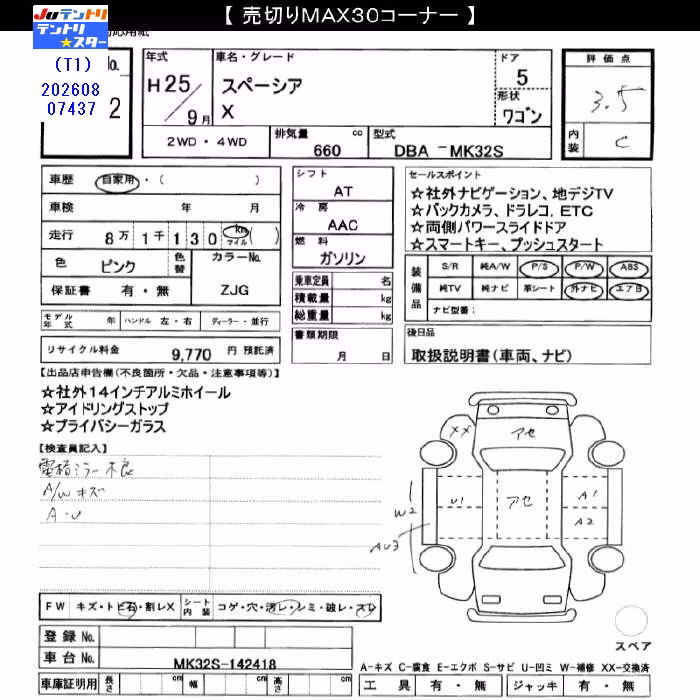 【 売切りMAX30コーナー 】
JUテントリ
テントリ★スター
(T1)
202608
07437
No.
2
年式
H25/9月
車名・グレード
スペーシア
X
ドア
5
形状
ワゴン
評価点
3.5
内装
C
2WD・4WD
排気量 cc
660
型式
DBA-MK32S
車歴 自家用・( )
車検 年 月
走行 8万1千130 km マイル ( )
色 ピンク 色替 カラーNo.
保証書 有・無 ZJG
モデル年式 年 ハンドル 左・右 ディーラー・並行
リサイクル料金 9,770 円 預託済
シフト
AT
冷房
AAC
燃料
ガソリン
乗車定員 名
積載量 kg
総重量 kg
書類期限
月 日
セールスポイント
☆社外ナビゲーション、地デジTV
☆バックカメラ、ドラレコ、ETC
☆両側パワースライドドア
☆スマートキー、プッシュスタート
装備品
S/R 純A/W P/S P/W ABS
純TV 純ナビ 革シート 外ナビ エアB
ナビ型番:
後日品
取扱説明書(車両、ナビ)
【出品店申告欄(不良箇所・欠品・注意事項等)】
☆社外14インチアルミホイール
☆アイドリングストップ
☆プライバシーガラス
【検査員記入】
電格ミラー不良
A/W キズ
A・U
XX
アセ
U1
アセ
A1
A2
W2
AU3
スペア
FW キズ・トビ石・割レX シート内装 コゲ・穴・汚レ・シミ・破レ・スレ
登録No.
車台No. MK32S-142418
車庫証明用 長さ cm 幅 cm 高さ cm
A-キズ C-腐食 E-エクボ S-サビ U-凹ミ W-補修 XX-交換済
工具 有・無 ジャッキ 有・無